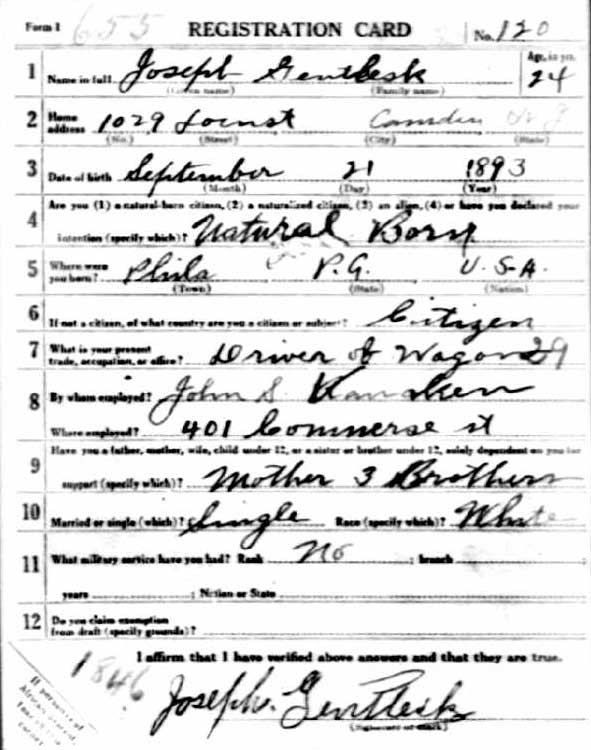 Form 1 655 REGISTRATION CARD No. 120
1 Name in full Joseph Gentlesk Age, in yrs. 24
(Given name) (Family name)
2 Home address 1029 Locust Camden N J
(No.) (Street) (City) (State)
3 Date of birth September 21 1893
(Month) (Day) (Year)
4 Are you (1) a natural-born citizen, (2) a naturalized citizen, (3) an alien, (4) or have you declared your
intention (specify which)? Natural Born
5 Where were you born? Phila P.A. U.S.A.
(Town) (State) (Nation)
6 If not a citizen, of what country are you a citizen or subject? Citizen
7 What is your present trade, occupation, or office? Driver of Wagon 29
8 By whom employed? John S
Where employed? 401 Commerse st
9 Have you a father, mother, wife, child under 12, or a sister or brother under 12, solely dependent on you for
support (specify which)? Mother 3 Brothers
10 Married or single (which)? Single Race (specify which)? White
11 What military service have you had? Rank No ; branch ;
years ; Nation or State
12 Do you claim exemption from draft (specify grounds)?
I affirm that I have verified above answers and that they are true.
1846
Joseph Gentlesk
(Signature or mark)
If person is of African descent,
corner